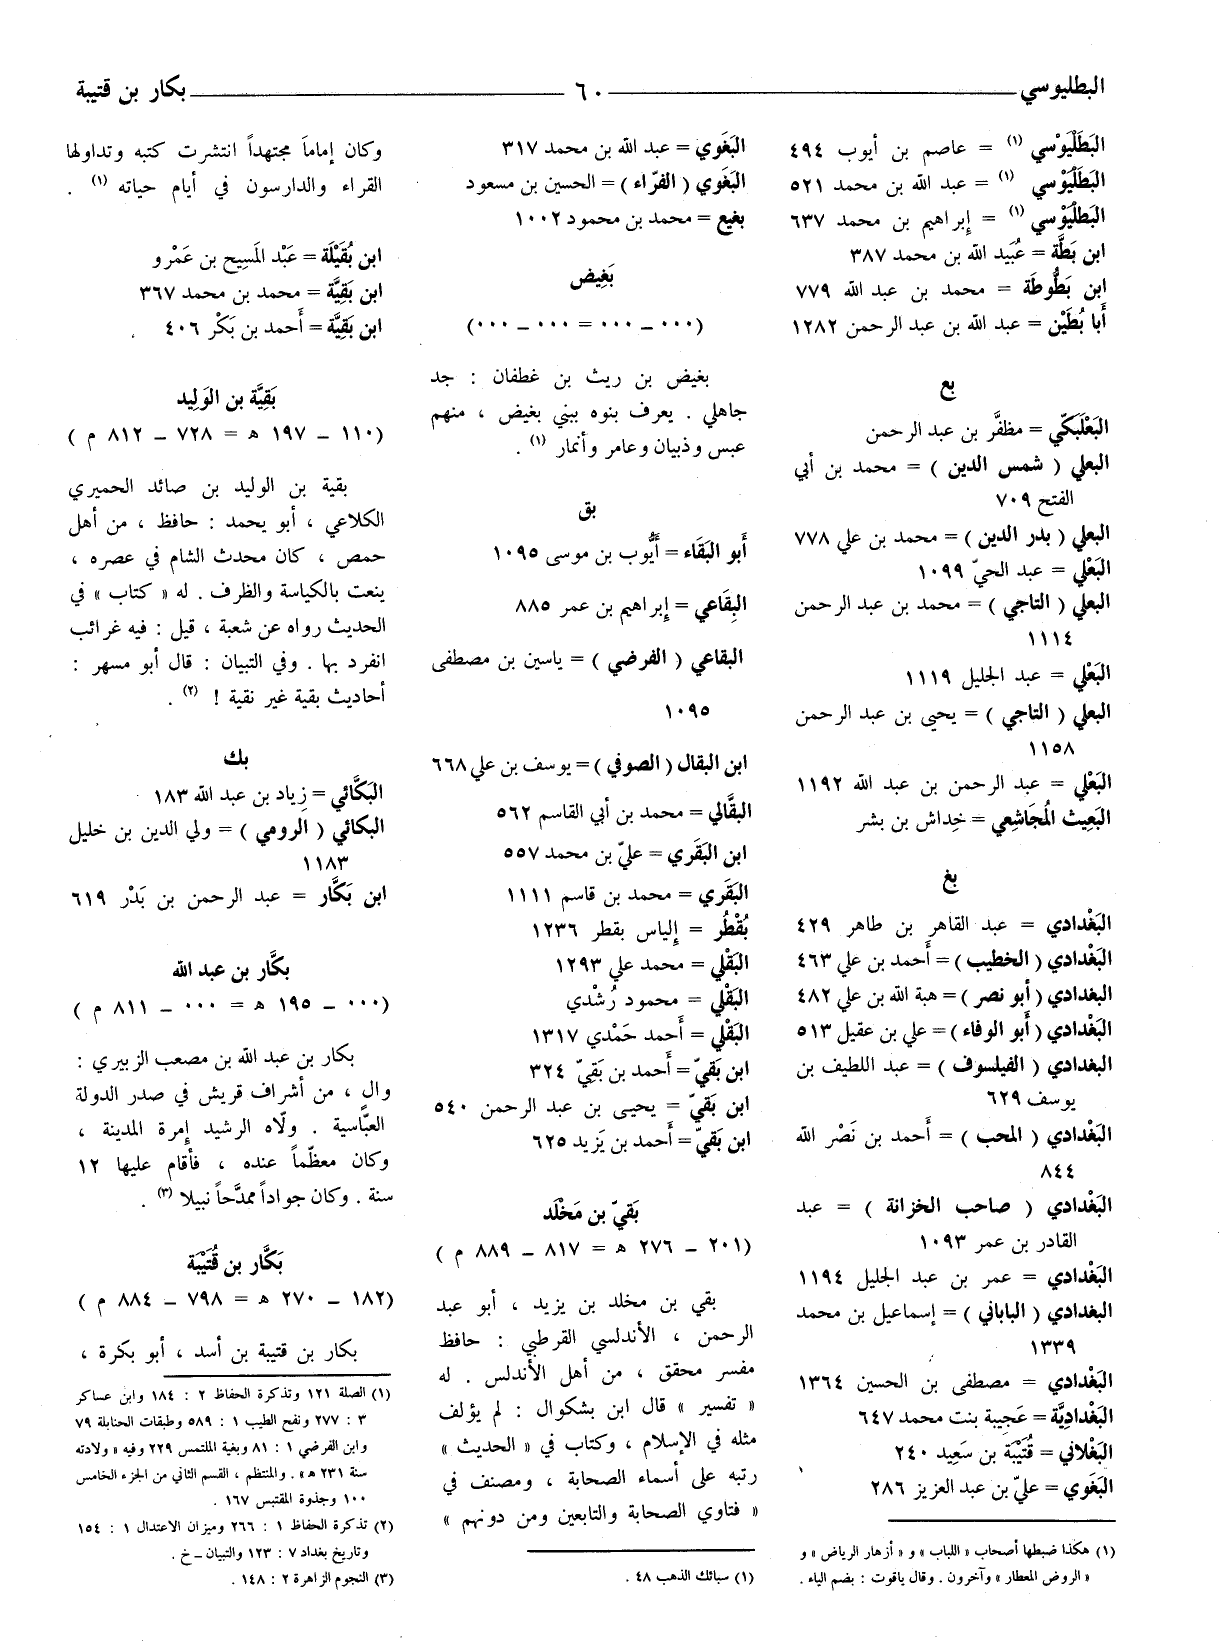 البطليوسي ٦٠ بكار بن قتيبة
البَطَلْيَوْسي (١) = عاصم بن أيوب ٤٩٤
البَطَلْيَوْسي (١) = عبد الله بن محمد ٥٢١
البَطَلْيَوْسي (١) = إبراهيم بن محمد ٦٣٧
ابن بَطَّة = عُبَيد الله بن محمد ٣٨٧
ابن بَطُّوطَة = محمد بن عبد الله ٧٧٩
أبا بُطَيْن = عبد الله بن عبد الرحمن ١٢٨٢
بع
البَعْلَبَكّي = مظفَّر بن عبد الرحمن
البعلي ( شمس الدين ) = محمد بن أبي
الفتح ٧٠٩
البعلي ( بدر الدين ) = محمد بن علي ٧٧٨
البَعْلي = عبد الحيّ ١٠٩٩
البعلي ( التاجي ) = محمد بن عبد الرحمن
١١١٤
البَعْلي = عبد الجليل ١١١٩
البعلي ( التاجي ) = يحيى بن عبد الرحمن
١١٥٨
البَعْلي = عبد الرحمن بن عبد الله ١١٩٢
البَعِيث المُجَاشِعي = خِداش بن بشر
بغ
البَغْدادي = عبد القاهر بن طاهر ٤٢٩
البَغْدادي ( الخطيب ) = أحمد بن علي ٤٦٣
البغدادي ( أبو نصر ) = هبة الله بن علي ٤٨٢
البَغْدادي ( أبو الوفاء ) = علي بن عقيل ٥١٣
البغدادي ( الفيلسوف ) = عبد اللطيف بن
يوسف ٦٢٩
البَغْدادي ( المحب ) = أحمد بن نَصْر الله
٨٤٤
البَغْدادي ( صاحب الخزانة ) = عبد
القادر بن عمر ١٠٩٣
البَغْدادي = عمر بن عبد الجليل ١١٩٤
البغدادي ( الباباني ) = إسماعيل بن محمد
١٣٣٩
البَغْدادي = مصطفى بن الحسين ١٣٦٤
البَغْدادِيَّة = عَجِيبة بنت محمد ٦٤٧
البَغْلاني = قُتَيْبَة بن سَعِيد ٢٤٠
البَغَوي = عليّ بن عبد العزيز ٢٨٦
(١) هكذا ضبطها أصحاب « اللباب » و « أزهار الرياض » و
« الروض المعطار » وآخرون . وقال ياقوت : بضم الياء .
البَغَوي = عبد الله بن محمد ٣١٧
البَغَوي ( الفرّاء ) = الحسين بن مسعود
بغيع = محمد بن محمود ١٠٠٢
بَغِيض
( ٠٠٠ ــ ٠٠٠ = ٠٠٠ ــ ٠٠٠ )
بغيض بن ريث بن غطفان : جد
جاهلي . يعرف بنوه ببني بغيض ، منهم
عبس وذبيان وعامر وأنمار (١) .
بق
أبو البَقَاء = أيُّوب بن موسى ١٠٩٥
البِقَاعي = إبراهيم بن عمر ٨٨٥
البقاعي ( الفرضي ) = ياسين بن مصطفى
١٠٩٥
ابن البقال ( الصوفي ) = يوسف بن علي ٦٦٨
البقَّالي = محمد بن أبي القاسم ٥٦٢
ابن البَقَري = عليّ بن محمد ٥٥٧
البَقَري = محمد بن قاسم ١١١١
بُقْطُر = إلياس بقطر ١٢٣٦
البَقْلي = محمد علي ١٢٩٣
البَقْلي = محمود رُشْدي
البَقْلي = أحمد حَمْدي ١٣١٧
ابن بَقيّ = أحمد بن بَقيّ ٣٢٤
ابن بَقيّ = يحيى بن عبد الرحمن ٥٤٠
ابن بَقيّ = أحمد بن يَزيد ٦٢٥
بَقيّ بن مَخْلَد
(٢٠١ ــ ٢٧٦ ه = ٨١٧ ــ ٨٨٩ م )
بقي بن مخلد بن يزيد ، أبو عبد
الرحمن ، الأندلسي القرطبي : حافظ
مفسر محقق ، من أهل الأندلس . له
« تفسير » قال ابن بشكوال : لم يؤلف
مثله في الإسلام ، وكتاب في « الحديث »
رتبه على أسماء الصحابة ، ومصنف في
« فتاوي الصحابة والتابعين ومن دونهم »
(١) سبائك الذهب ٤٨ .
وكان إماماً مجتهداً انتشرت كتبه وتداولها
القراء والدارسون في أيام حياته (١) .
ابن بُقَيْلَة = عَبْد المَسِيح بن عَمْرو
ابن بَقِيَّة = محمد بن محمد ٣٦٧
ابن بَقِيَّة = أحمد بن بَكْر ٤٠٦
بَقِيَّة بن الوَلِيد
(١١٠ ــ ١٩٧ ه = ٧٢٨ ــ ٨١٢ م )
بقية بن الوليد بن صائد الحميري
الكلاعي ، أبو يحمد : حافظ ، من أهل
حمص ، كان محدث الشام في عصره ،
ينعت بالكياسة والظرف . له « كتاب » في
الحديث رواه عن شعبة ، قيل : فيه غرائب
انفرد بها . وفي التبيان : قال أبو مسهر :
أحاديث بقية غير نقية ! (٢) .
بك
البَكَّائي = زِياد بن عبد الله ١٨٣
البكائي ( الرومي ) = ولي الدين بن خليل
١١٨٣
ابن بَكَّار = عبد الرحمن بن بَدْر ٦١٩
بكَّار بن عبد الله
( ٠٠٠ ــ ١٩٥ ه = ٠٠٠ ــ ٨١١ م )
بكار بن عبد الله بن مصعب الزبيري :
والٍ ، من أشراف قريش في صدر الدولة
العبّاسية . ولّاه الرشيد إمرة المدينة ،
وكان معظّماً عنده ، فأقام عليها ١٢
سنة . وكان جواداً ممدَّحاً نبيلا (٣) .
بَكَّار بن قُتَيْبَة
(١٨٢ ــ ٢٧٠ ه = ٧٩٨ ــ ٨٨٤ م )
بكار بن قتيبة بن أسد ، أبو بكرة ،
(١) الصلة ١٢١ وتذكرة الحفاظ ٢ : ١٨٤ وابن عساكر
٣ : ٢٧٧ ونفح الطيب ١ : ٥٨٩ وطبقات الحنابلة ٧٩
وابن الفرضي ١ : ٨١ وبغية الملتمس ٢٢٩ وفيه « ولادته
سنة ٢٣١ ه » . والمنتظم ، القسم الثاني من الجزء الخامس
١٠٠ وجذوة المقتبس ١٦٧ .
(٢) تذكرة الحفاظ ١ : ٢٦٦ وميزان الاعتدال ١ : ١٥٤
وتاريخ بغداد ٧ : ١٢٣ والتبيان ــ خ .
(٣) النجوم الزاهرة ٢ : ١٤٨ .